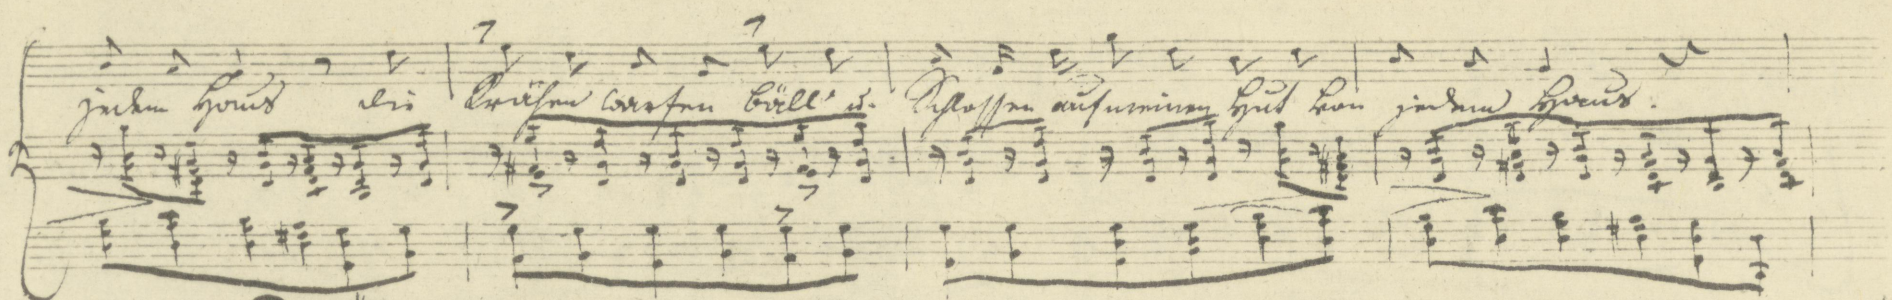 jedem Haus die Krähen warfen Bäll' u. Schlossen auf meinen Hut von jedem Haus.